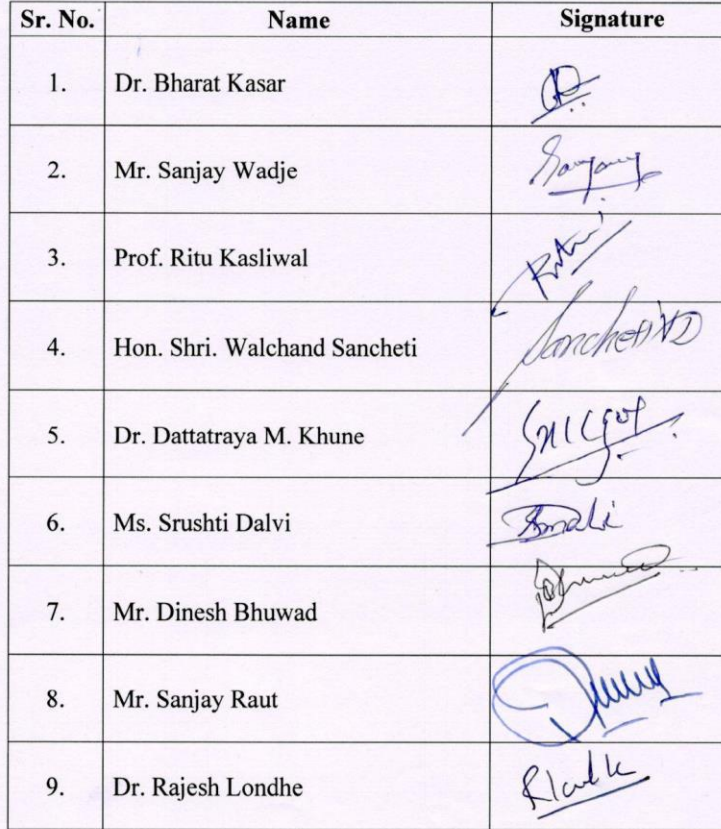 Sr. No. Name Signature
1. Dr. Bharat Kasar
2. Mr. Sanjay Wadje
3. Prof. Ritu Kasliwal Ritu
4. Hon. Shri. Walchand Sancheti Sancheti VD
5. Dr. Dattatraya M. Khune
6. Ms. Srushti Dalvi
7. Mr. Dinesh Bhuwad
8. Mr. Sanjay Raut
9. Dr. Rajesh Londhe